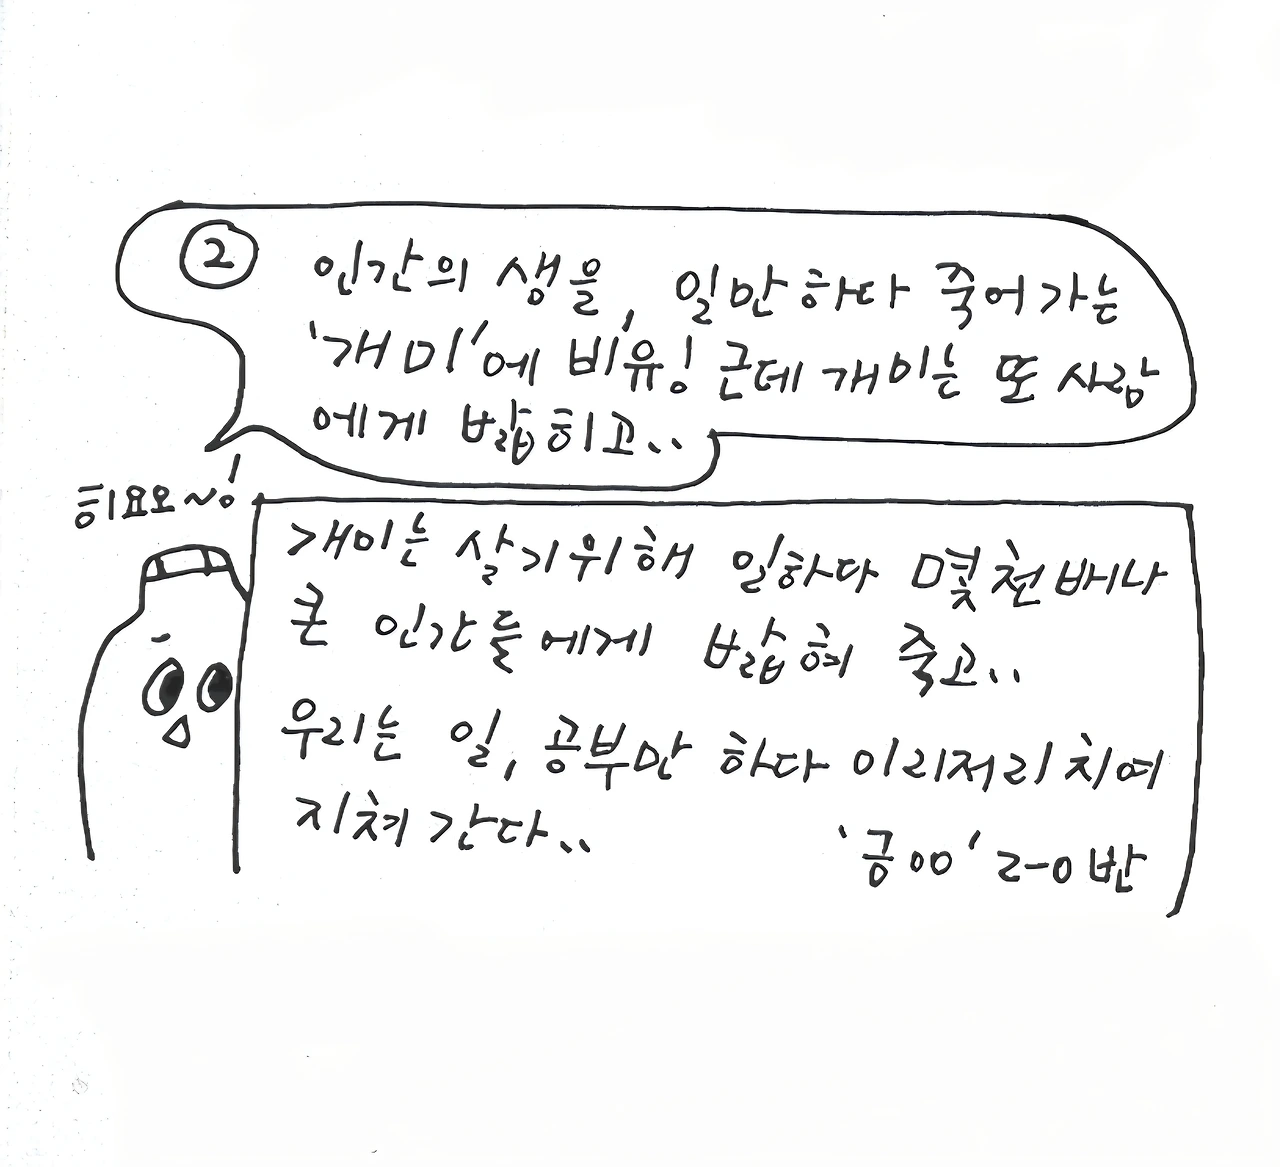 ② 인간의 생을, 일만하다 죽어가는
'개미'에 비유! 근데 개미는 또 사람
에게 밟히고..
히요오~!
개미는 살기위해 일하다 몇천배나
큰 인간들에게 밟혀 죽고..
우리는 일, 공부만 하다 이리저리 치여
지쳐간다..
'공00' 2-0반